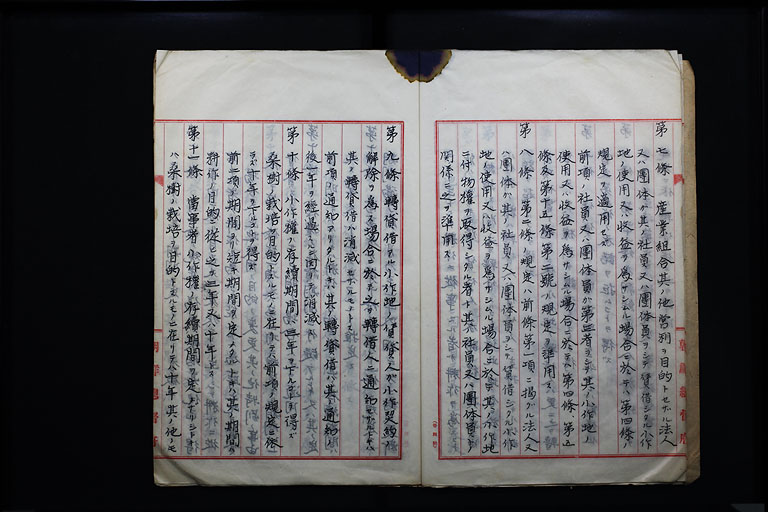 第七條 産業組合其ノ他營利ヲ目的トセザル法人
又ハ團体ガ其ノ社員又ハ團体員ヲシテ賃借シタル小作
地ヲ使用又ハ收益ヲ爲サシムル場合ニ於テハ第四條ノ
規定ヲ適用セズ
前項ノ社員又ハ團体員ガ第三者ヲシテ其ノ小作地ノ
使用又ハ收益ヲ爲サシムル場合ニ於テハ第四條、第五
條及第十五條第二號ノ規定ヲ準用ス
第八條 第二條ノ規定ハ前條第一項ニ揭グル法人又
ハ團体ガ其ノ社員又ハ團体員ヲシテ賃借シタル小作
地ヲ使用又ハ收益ヲ爲サシムル場合ニ於テ其ノ小作地
ニ付物權ヲ取得シタル者ト其ノ社員又ハ團体員トノ
關係ニ之ヲ準用ス
第九條 轉貸借アル小作地ノ賃貸人ガ小作契約
解除ヲ爲ス場合ニ於テ之ヲ轉借人ニ通知セザルトキハ
其ノ轉貸借ハ消滅セザルモノトス
前項ノ通知アリタルトキハ其ノ轉貸借ハ其ノ通知ノ
後一年ヲ經過スルニ因リテ消滅ス
第十條 小作權ノ存續期間ハ三年ヲ下ルコトヲ得ズ
桑樹ノ栽培ヲ目的トスルモノニ在リテハ前項ノ規定ニ依
ラズ十年ヲ下ルコトヲ得ズ
前二項ノ期間ヨリ短キ期間ヲ定メタルトキハ其ノ期間ハ
耕作ノ目的ニ從ヒ之ヲ三年又ハ十年トス
第十一條 當事者小作權ノ存續期間ヲ定メザリシトキ
ハ桑樹ノ栽培ヲ目的トスルモノニ在リテハ十年其ノ他ノモ